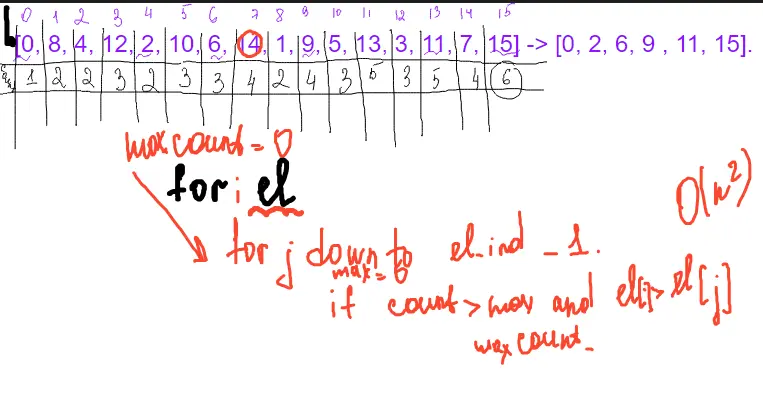 0 1 2 3 4 5 6 7 8 9 10 11 12 13 14 15
[0, 8, 4, 12, 2, 10, 6, 14, 1, 9, 5, 13, 3, 11, 7, 15] -> [0, 2, 6, 9 , 11, 15].
1 2 2 3 2 3 3 4 2 4 3 5 3 5 4 6
max count = 0
for i el
O(n²)
for j down to el_ind - 1.
max = 0
if count > max and el[i] > el[j]
max count -